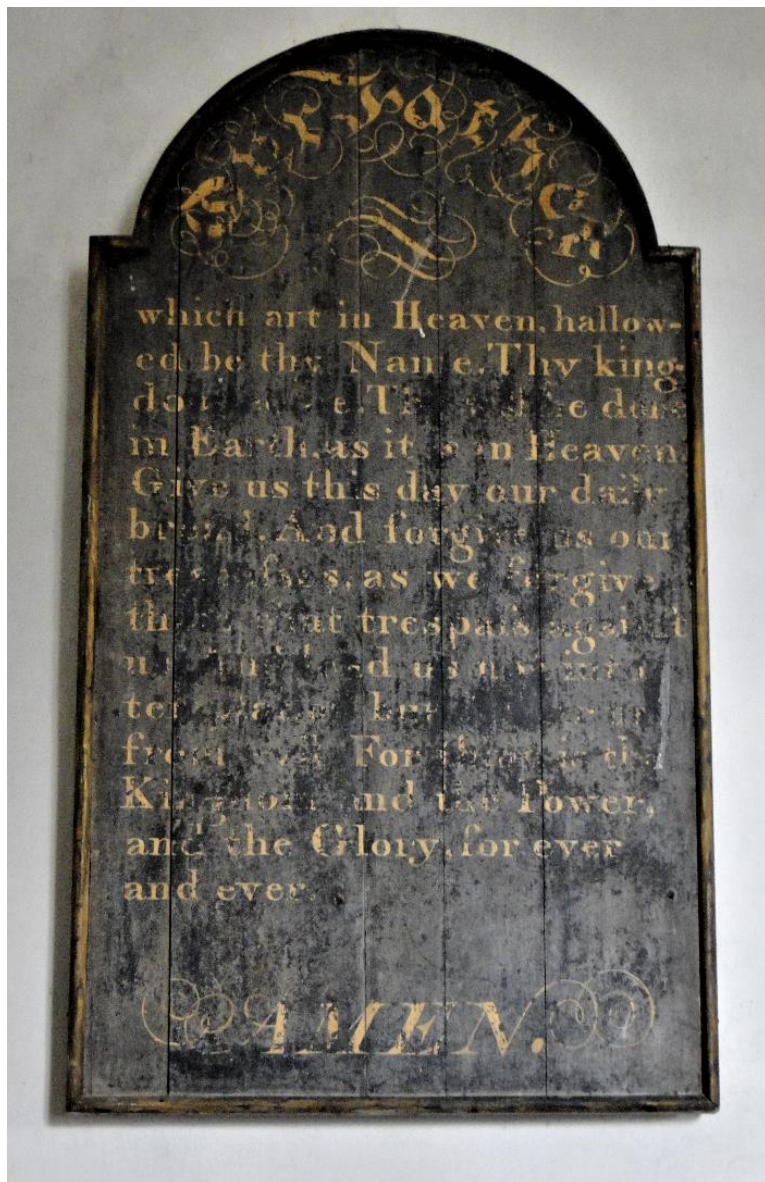 Our Father
which art in Heaven, hallow-
ed be thy Name. Thy king-
dom come. Thy will be done
in Earth, as it is in Heaven.
Give us this day our daily
bread. And forgive us our
trespasses, as we forgive
them that trespass against
us. And lead us not into
temptation, but deliver us
from evil. For thine is the
Kingdom, and the Power,
and the Glory, for ever
and ever.
AMEN.